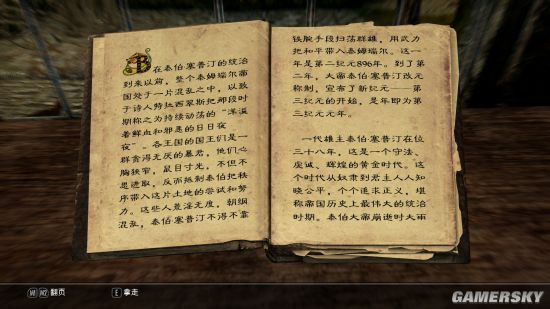 在泰伯·塞普汀的统治
到来以前，整个泰姆瑞尔帝
国处于一片混乱之中，以致
于诗人特拉西翠斯把那段时
期称之为持续动荡的“洋溢
着鲜血和邪恶的日日夜
夜”。各王国的国王们是一
群贪得无厌的暴君，他们心
胸狭窄，鼠目寸光，不但不
思进取，反而抵制泰伯把秩
序带入这片土地的尝试和努
力。这些人荒淫无度，朝纲
混乱，泰伯·塞普汀不得不靠
铁腕手段扫荡群雄，用武力
把和平带入泰姆瑞尔。这一
年是第二纪元896年。到了第
二年，大帝泰伯·塞普汀改元
称制，宣布了新纪元——第
三纪元的开始，是年即为第
三纪元元年。
一代雄主泰伯·塞普汀在位
三十八年，这是一个守法、
虔诚、辉煌的黄金时代。这
个时代从奴隶到君主人人知
晓公平，个个追求正义，堪
称帝国历史上最伟大的统治
时期。泰伯大帝崩逝时大雨
翻页 E 拿走
GAMERSKY